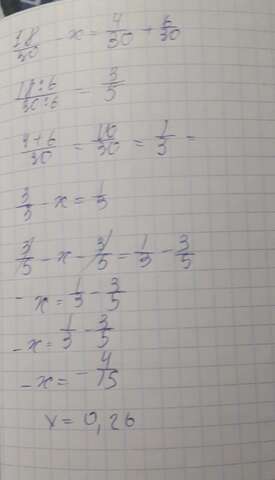 18/30 - x = 4/30 + 6/30
18:6/30:6 = 3/5
4+6/30 = 10/30 = 1/3 =
3/5 - x = 1/3
3/5 - x - 3/5 = 1/3 - 3/5
- x = 1/3 - 3/5
- x = 1/3 - 3/5
- x = - 4/15
x = 0,26